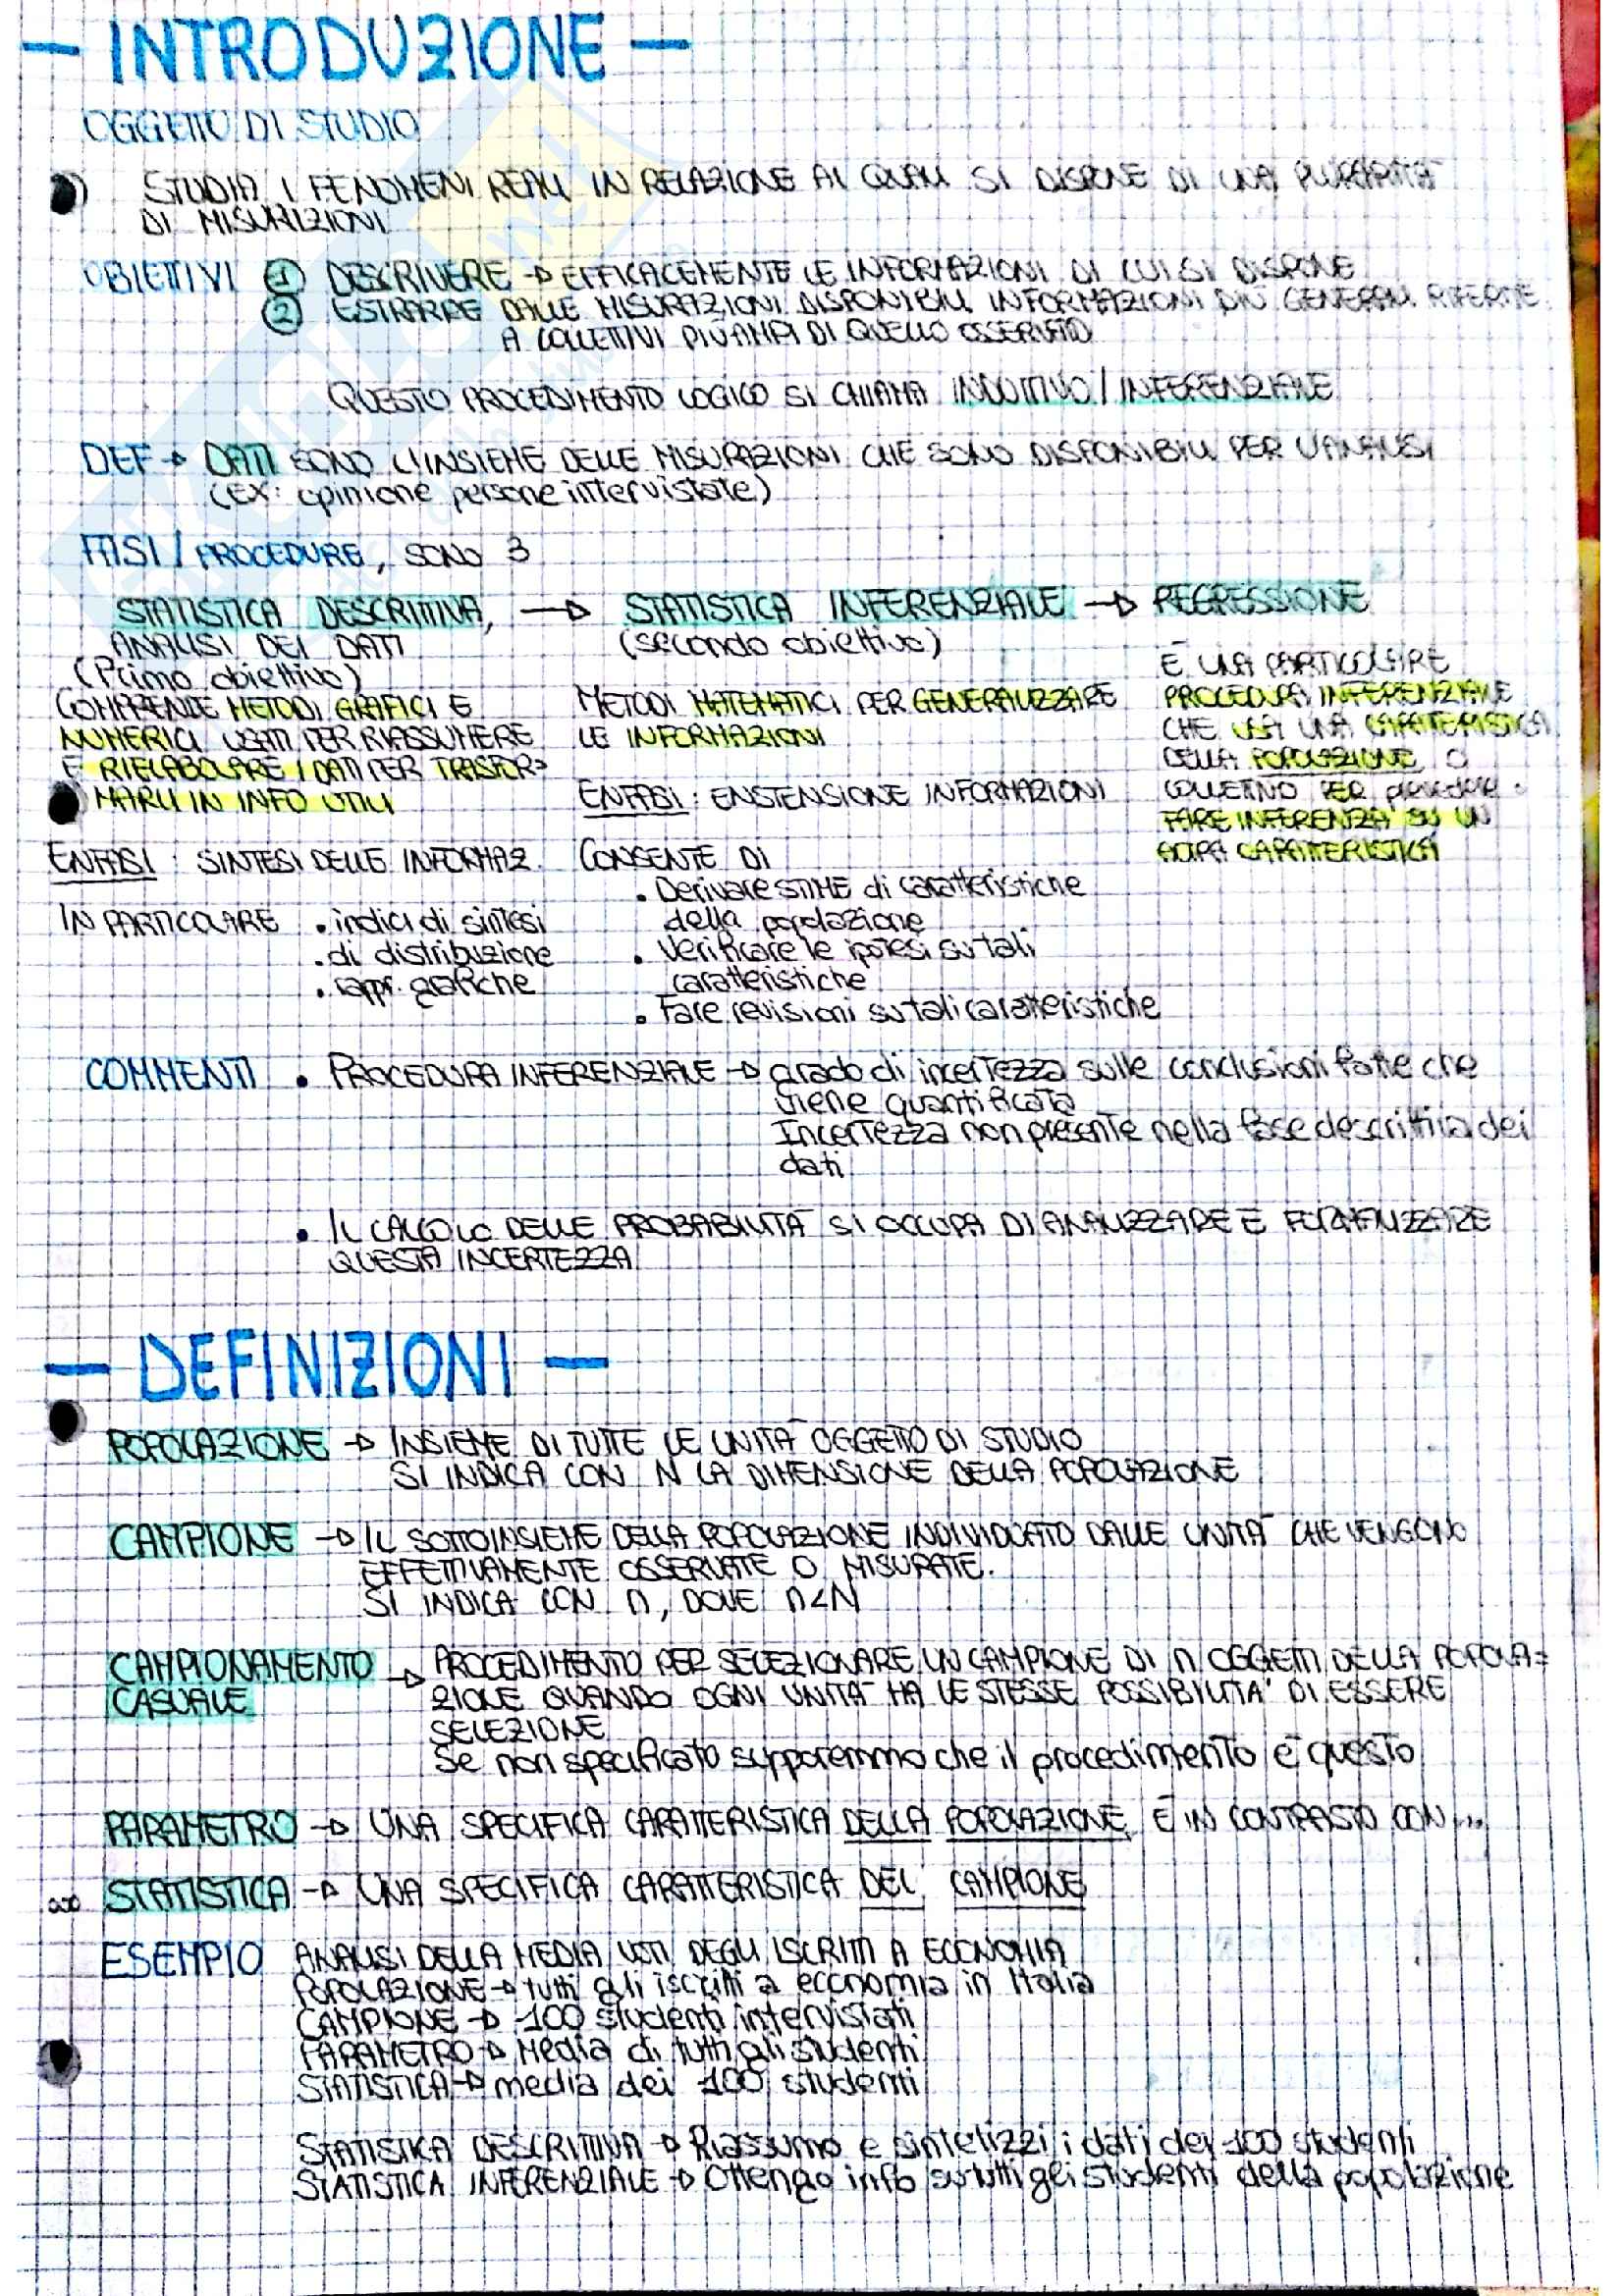 — INTRODUZIONE —
OGGETTO DI STUDIO
STUDIA I FENOMENI REALI IN RELAZIONE AI QUALI SI DISPONE DI UNA PLURARITÀ
DI MISURIZIONI
OBIETTIVI ① DESCRIVERE → EFFICACEMENTE LE INFORMAZIONI DI CUI SI DISPONE
② ESTRARRE DALLE MISURAZIONI DISPONIBILI INFORMAZIONI PIÙ GENERALI RIFERITE
A COLLETTIVI PIÙ AMPI DI QUELLO OSSERVATO
QUESTO PROCEDIMENTO LOGICO SI CHIAMA INDUTTIVO / INFERENZIALE
DEF → DATI SONO L'INSIEME DELLE MISURAZIONI CHE SONO DISPONIBILI PER L'ANALISI
(EX: opinione persone intervistate)
FASI / PROCEDURE, SONO 3
STATISTICA DESCRITTIVA, → STATISTICA INFERENZIALE → REGRESSIONE
ANALISI DEI DATI
(Primo obiettivo)
COMPRENDE METODI GRAFICI E
NUMERICI USATI PER RIASSUMERE
E RIELABOLARE I DATI PER TRASFOR=
MARLI IN INFO UTILI
ENFASI: SINTESI DELLE INFORMAZ.
IN PARTICOLARE • indici di sintesi
• di distribuzione
• rappr. grafiche
(secondo obiettivo)
METODI MATEMATICI PER GENERALIZZARE
LE INFORMAZIONI
ENFASI: ENSTENSIONE INFORMAZIONI
CONSENTE DI
• Derivare STIME di caratteristiche
della popolazione
• Verificare le ipotesi su tali
caratteristiche
• Fare revisioni su tali caratteristiche
È UNA PARTICOLARE
PROCEDURA INFERENZIALE
CHE USA UNA CARATTERISTICA
DELLA POPOLAZIONE O
COLLETTIVO PER prevedere
FARE INFERENZA SU UN
ALTRA CARATTERISTICA
COMMENTI • PROCEDURA INFERENZIALE → grado di incertezza sulle conclusioni fatte che
viene quantificata
Incertezza non presente nella fase descrittiva dei
dati
• IL CALCOLO DELLE PROBABILITÀ SI OCCUPA DI ANALIZZARE E FORMALIZZARE
QUESTA INCERTEZZA
— DEFINIZIONI —
POPOLAZIONE → INSIEME DI TUTTE LE UNITÀ OGGETTO DI STUDIO
SI INDICA CON N LA DIMENSIONE DELLA POPOLAZIONE
CAMPIONE → IL SOTTOINSIEME DELLA POPOLAZIONE INDIVIDUATO DALLE UNITÀ CHE VENGONO
EFFETTIVAMENTE OSSERVATE O MISURATE.
SI INDICA CON n, DOVE n<N
CAMPIONAMENTO → PROCEDIMENTO PER SELEZIONARE UN CAMPIONE DI n OGGETTI DELLA POPOLA=
CASUALE ZIONE QUANDO OGNI UNITÀ HA LE STESSE POSSIBILITÀ DI ESSERE
SELEZIONE
Se non specificato supporemmo che il procedimento è questo
PARAMETRO → UNA SPECIFICA CARATTERISTICA DELLA POPOLAZIONE, È IN CONTRASTO CON ...
STATISTICA → UNA SPECIFICA CARATTERISTICA DEL CAMPIONE
ESEMPIO ANALISI DELLA MEDIA VOTI DEGLI ISCRITTI A ECONOMIA
POPOLAZIONE → tutti gli iscritti a economia in Italia
CAMPIONE → 100 studenti intervistati
PARAMETRO → Media di tutti gli studenti
STATISTICA → media dei 100 studenti
STATISTICA DESCRITTIVA → Riassumo e sintetizzi i dati dei 100 studenti
STATISTICA INFERENZIALE → Ottengo info su tutti gli studenti della popolazione